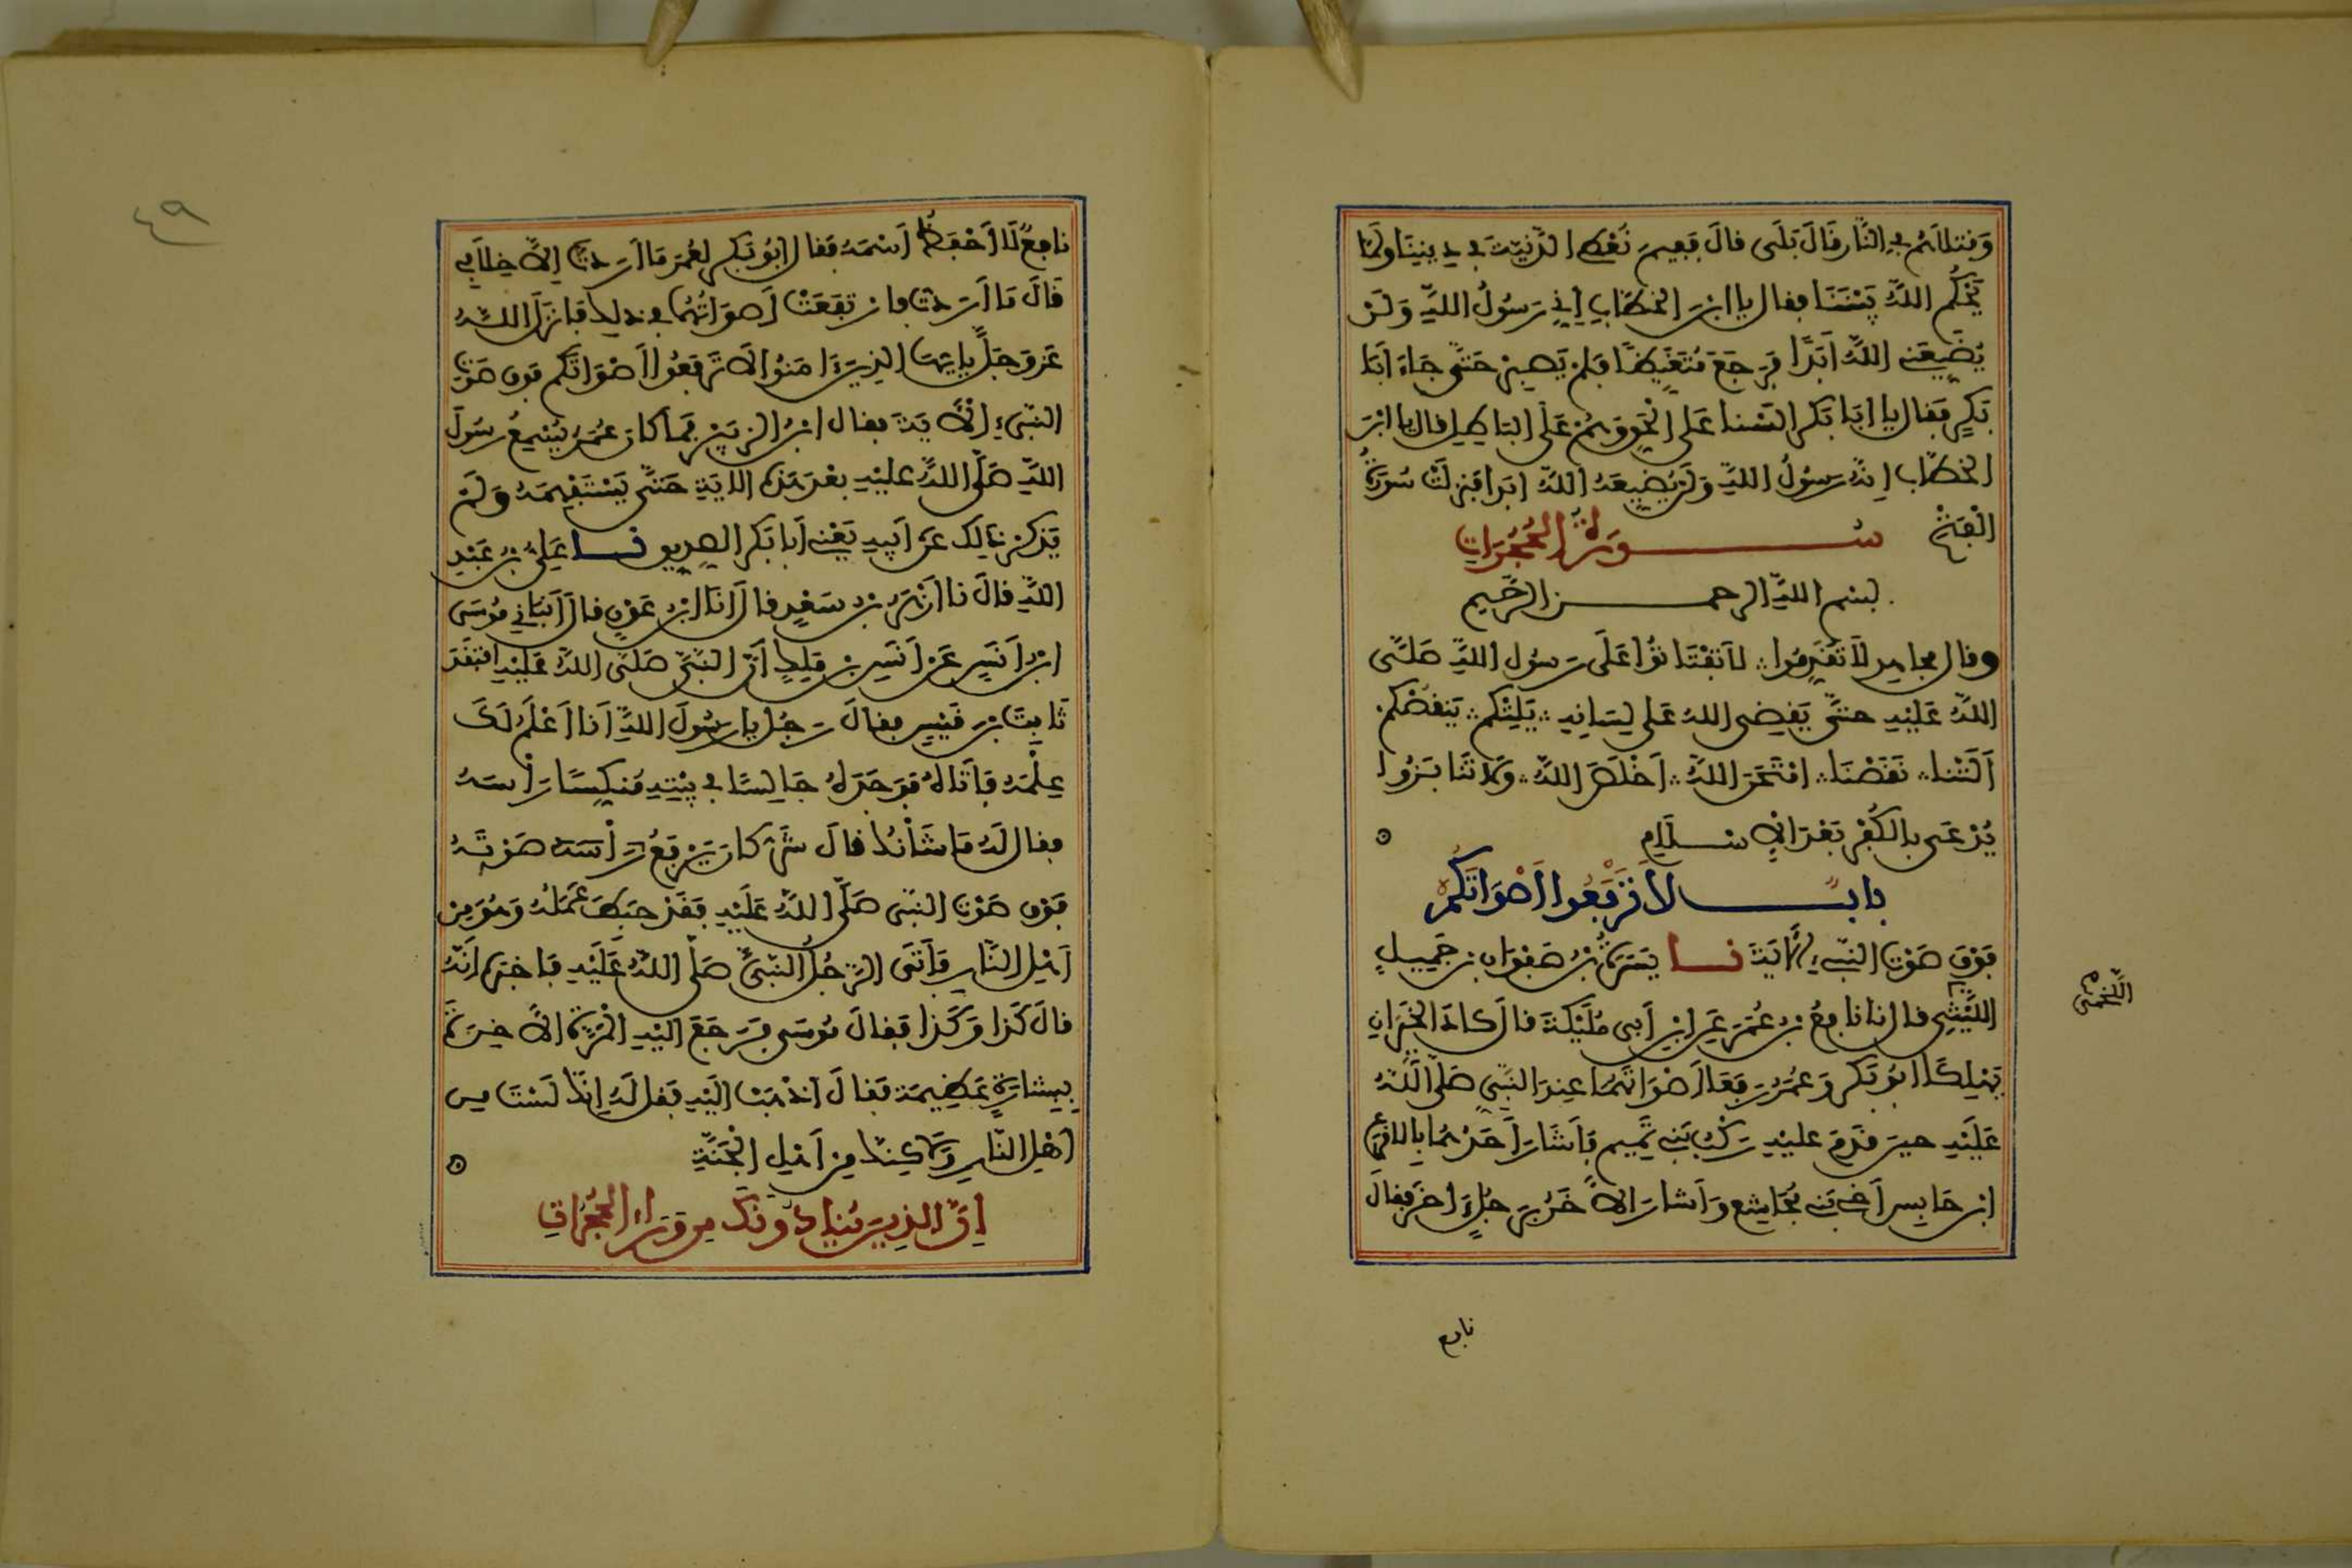 وَقتلاهُم في النَّار قَالَ بَلَى قالَ فَفِيمَ نُعْطِى الدَّنِيَّةَ في دِينِنَا ولَمَّا
يَحْكُمِ اللَّهُ بَيْنَنَا فقال يا ابْنَ الخَطَّابِ إِنِّي رَسُولُ اللَّهِ وَلَنْ
يُضَيِّعَنِي اللَّهُ أَبَدًا فَرَجَعَ مُتَغَيِّظًا فَلَمْ يَصْبِرْ حَتَّى جَاءَ أَبَا
بَكْرٍ فَقَالَ يا أبَا بَكْر أَلَسْنا عَلى الْحَقِّ وَهُمْ عَلَى البَاطِلِ قال يا ابْنَ
الخَطَّابِ إِنَّهُ رَسُولُ اللَّهِ وَلَنْ يُضَيِّعَهُ اللَّهُ أبَدا فَنَزلَتْ سُورَةُ
الْفَتْحِ سُورَةُ الحُجُرَاتِ
بِسْمِ اللَّهِ الرحمن الرَّحِيم
وقال مجاهد لاَ تُقَدِّمُوا لاَ تَفْتَاتُوا عَلَى رَسُولِ اللَّهِ صَلَّى
اللَّهُ عَلَيْهِ حتَّى يَقْضِى اللهُ عَلى لِسَانِهِ يَلِتْكُم يَنقُصْكُم
أَلَتْنا نَقَصْنَا امْتَحَنَ اللَّهُ أَخْلَصَ اللَّهُ وَلاَ تَنَابَزُوا
يُدْعَى بِالكُفْرِ بَعْدَ الإِسْلَامِ
بابٌ لاَ تَرْفَعُوا أَصْوَاتَكُمْ
فَوْقَ صَوْتِ النَّبِيءِ الآيَةَ نا يَسَرَةُ بْنُ صَفْوَانَ بْنِ جَمِيلٍ
اللَّخْمِيُّ
اللَّيْثِي قال نا نافِعُ بْنُ عُمَرَ عَنِ ابْنِ أَبِي مُلَيْكَةَ قالَ كَادَ الخَيِّرَانِ
يَهْلِكَا أبُو بَكْرٍ وَعُمَرُ رَفَعَا أَصْوَاتَهُمَا عِندَ النَّبِيِّ صَلَّى اللَّهُ
عَلَيْهِ حينَ قَدِمَ عليْهِ رَكْبُ بَنِي تَمِيمٍ فَأَشَارَ أَحَدُهُمَا بِالأَقْرَعِ
ابْنِ حَابِسٍ أَخِي بَنِي مُجَاشِعٍ وَأَشَارَ الآخَرُ بِرَجُلٍ ءاخَرَ فقالَ
نافع
٤٩
نافِعٌ لَا أَحْفَظُ اسْمَهُ فَقالَ أَبُو بَكْرٍ لِعُمَرَ مَا أَرَدتَّ إِلاَّ خِلَافِي
قَالَ مَا أَرَدتُّ فارْتَفَعَتْ أَصْوَاتُهُمَا في ذلِكَ فَأَنزَلَ اللَّهُ
عَزَّ وجَلَّ يا أيّهَا الذِينَ ءَامَنُوا لاَ تَرْفَعُوا أَصْوَاتَكُمْ فوق صَوْتِ
النَّبِيءِ الآيَةَ فقال ابْنُ الزُّبَيْرِ فَمَا كانَ عُمَرُ يُسْمِعُ رَسُولَ
اللَّهِ صَلَّى اللَّهُ عليْهِ بعْدَ هَذِهِ الآيَةِ حَتَّى يَسْتَفْهِمَهُ وَلَمْ
يَذكُرْ ذَلِكَ عَنْ أَبِيهِ يَعْنِي أَبَا بَكْرٍ الصِّدِّيقَ نا عَلِيُّ بْنُ عَبْدِ
اللَّهِ قالَ نا أَزْهَرُ بْنُ سَعْدٍ قالَ أَنَا ابْنُ عَوْنٍ قالَ أَنبَأَنِي مُوسَى
ابْنُ أَنَسٍ عَنْ أَنَسِ بْنِ مَلِكٍ أَنَّ النَّبِيَّ صَلَّى اللَّهُ عَلَيْهِ افْتَقَدَ
ثَابِتَ بْنَ قَيْسٍ فقالَ رَجُلٌ يا رَسُولَ اللَّهِ أَنَا أَعْلَمُ لَكَ
عِلْمَهُ فَأَتَاهُ فَوَجَدَهُ جَالِسًا في بَيْتِهِ مُنَكِّسًا رَأْسَهُ
فقال لَهُ مَا شَأْنُكَ قالَ شَرٌّ كانَ يَرْفَعُ رَأْسَهُ صَوْتَهُ
فَوْقَ صَوْتِ النَّبِي صَلَّى اللَّهُ عَلَيْهِ فَقَدْ حَبِطَ عَمَلُهُ وَهُوَ مِنْ
أَهْلِ النَّارِ فَأَتَى الرَّجُلُ النَّبِيَّ صَلَّى اللَّهُ عَلَيْهِ فَأَخبَرَهُ أَنَّهُ
قالَ كَذَا وَكَذَا فَقالَ مُوسَى فَرَجَعَ إلَيْهِ الْمَرَّةَ الآخِرَةَ
بِبِشَارَةٍ عَظِيمَةٍ فقالَ اذْهَبْ إلَيْهِ فَقُل لَهُ إِنَّكَ لَسْتَ مِن
أَهْلِ النَّارِ وَلَاكِنَّكَ مِنْ أَهْلِ الْجَنَّةِ
إِنَّ الذِينَ يُنَادُونَكَ مِن وَرَاءِ الحُجُرَاتِ